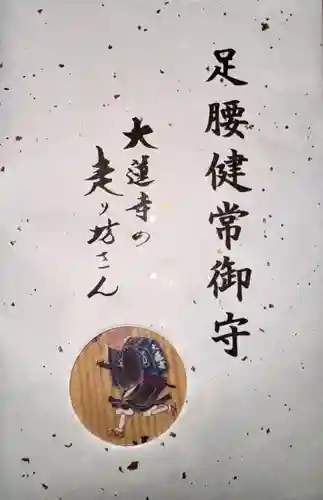 足腰健常御守
大蓮寺の
走り坊さん